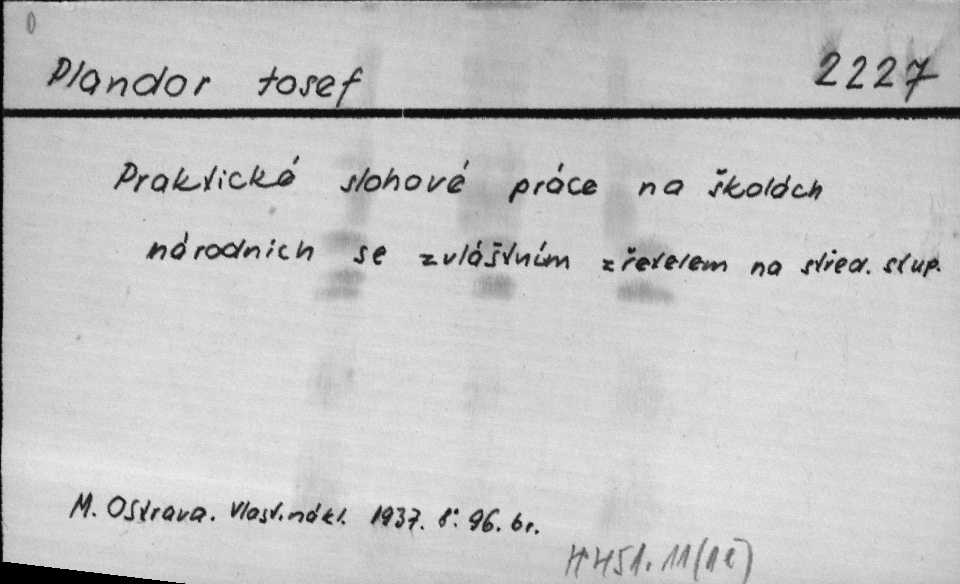 Plandor Josef 2227
Praktické slohové práce na školách
národních se zvláštním zřetelem na střed. stup.
M. Ostrava. Vlast. nákl. 1937. 8°. 96. br.